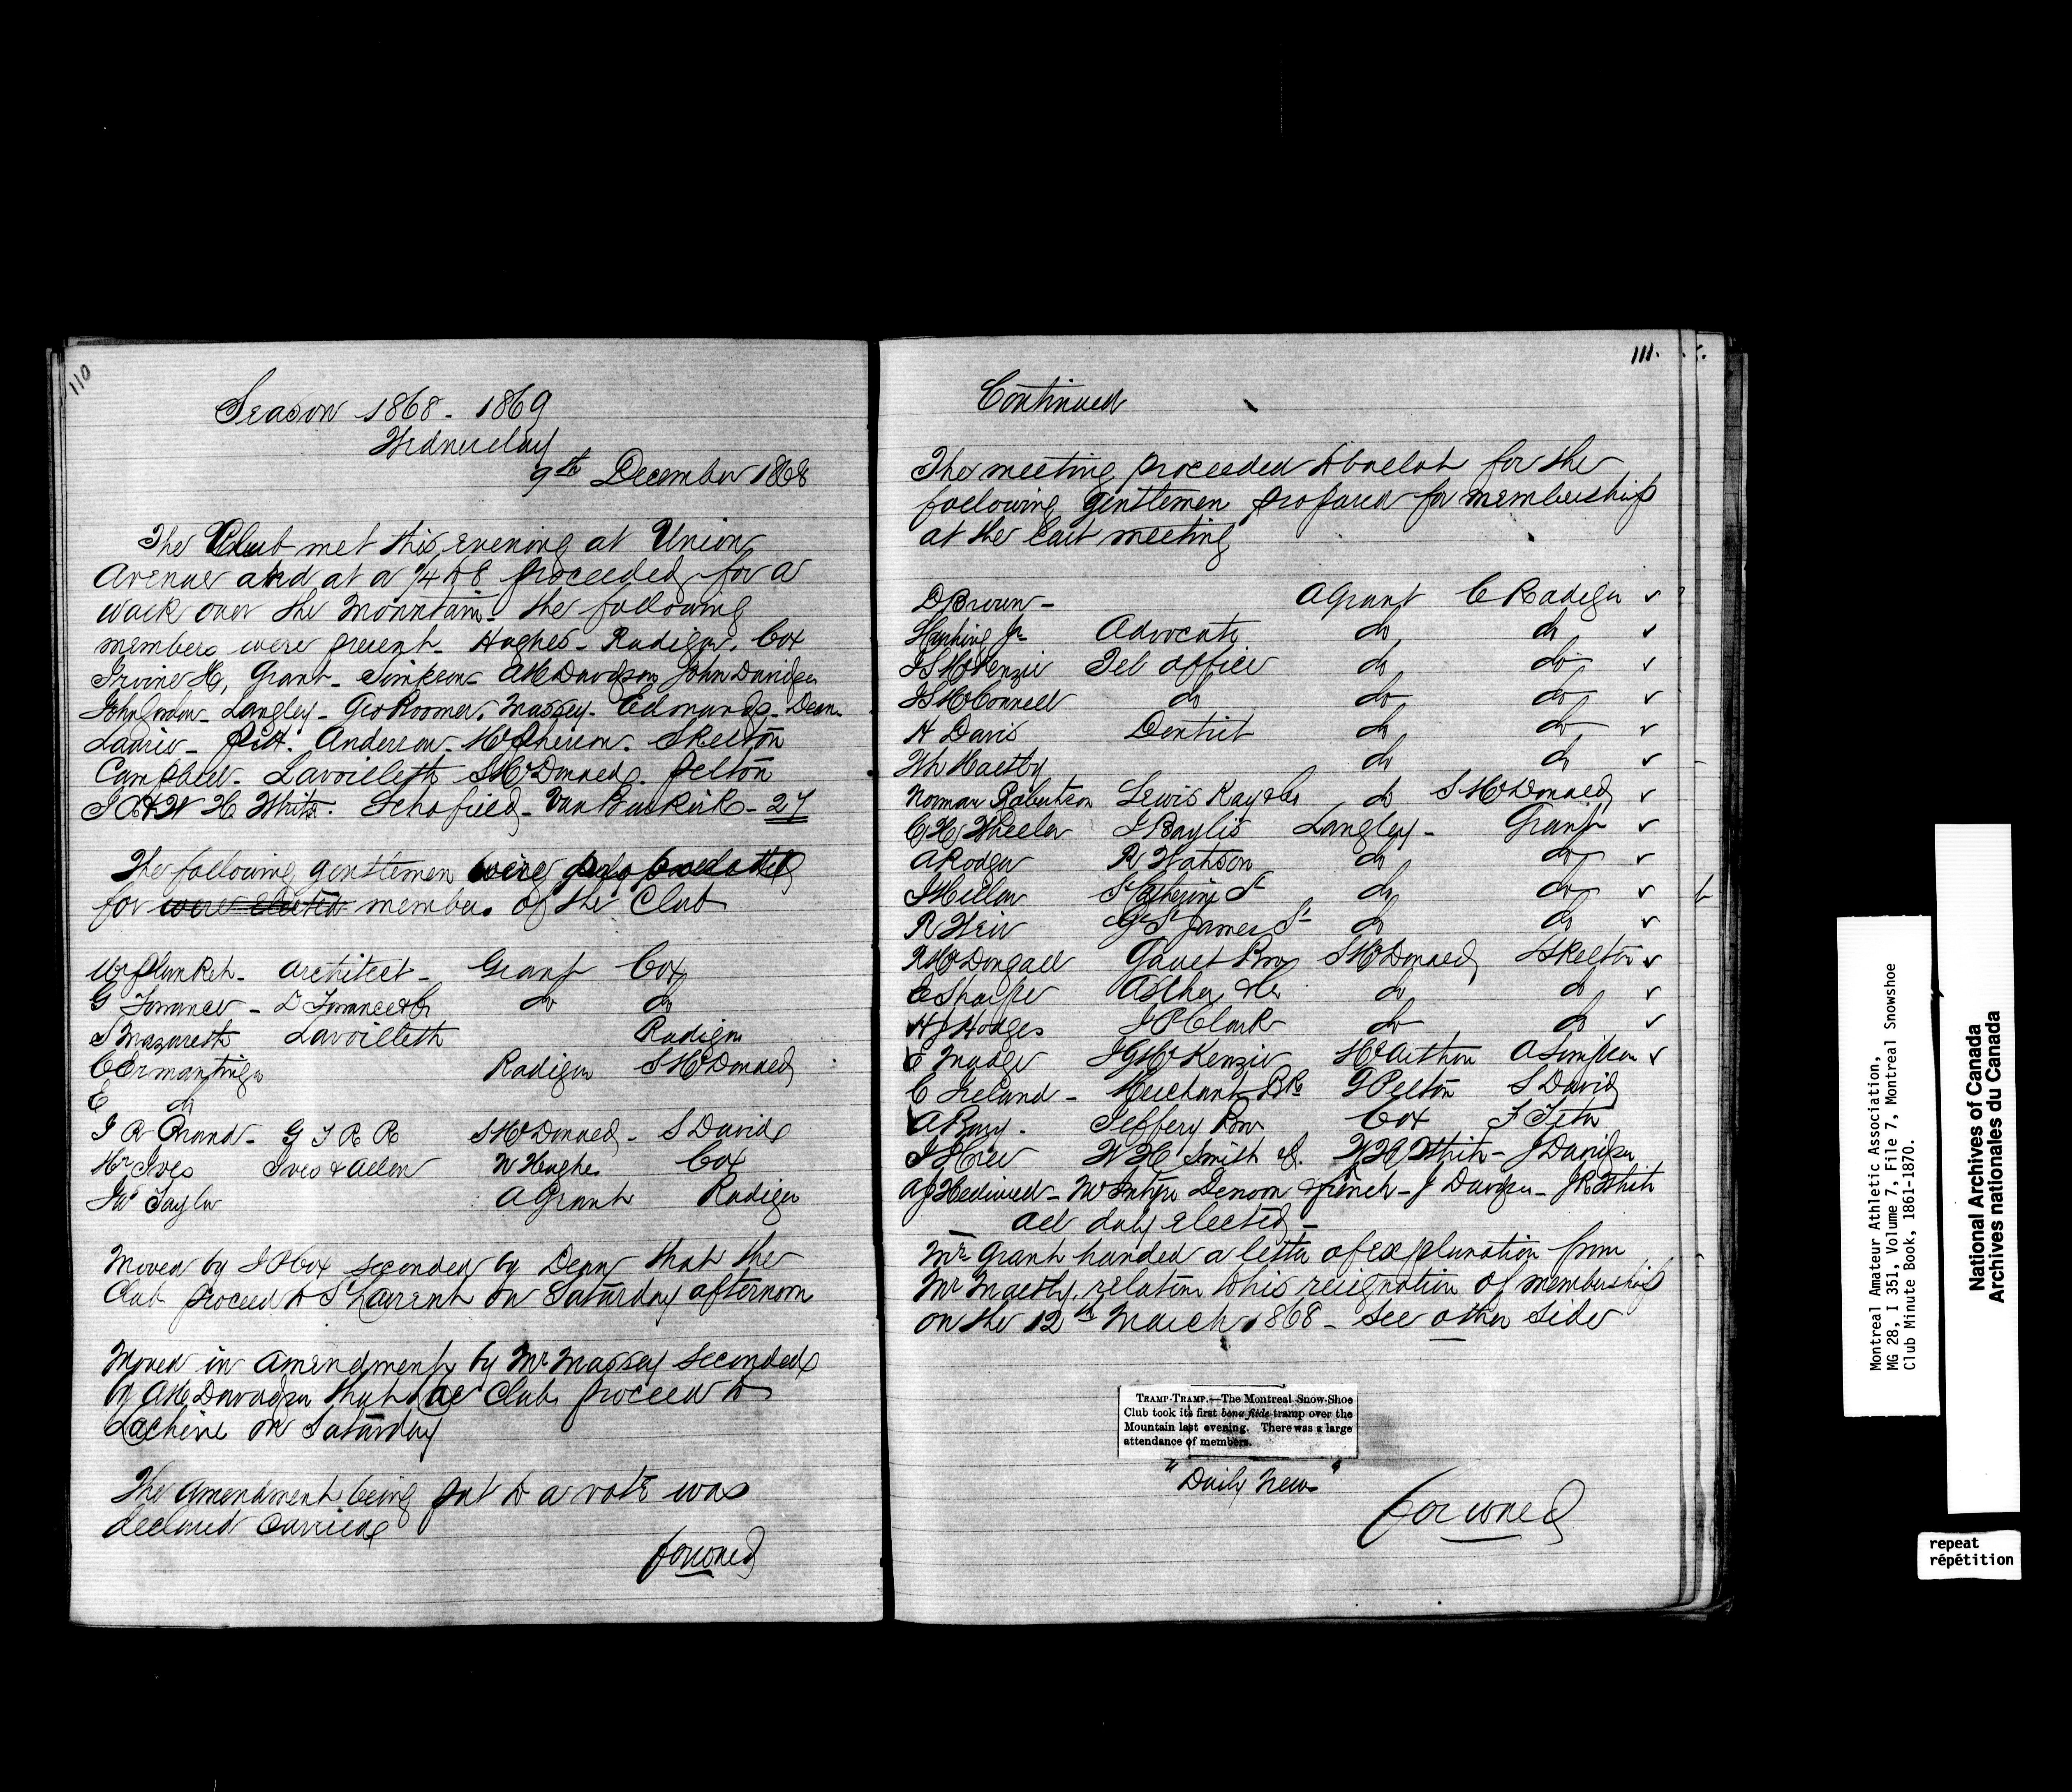 110
Season 1868 - 1869
Wednesday
9th December 1868
The Club met this evening at Union
Avenue and at a 1/4 to 8 proceeded for a
walk over the Mountain. the following
members were present - Hughes - Radiger. Cox
Irvine H, Grant - Simpson - AM Davidson John Davidson
John Gordon - Langley - Geo Roomer. Massey - Edmunds - Dean
Laurie - Pitt. Anderson. McPherson. Skelton
Campbell. Lavoilleth S McDonned. Pelton
J R & W H White. Schofield - Van Buskirk - 27
The following gentlemen were
for were elected members of the Club
Wm Plunkett - Architect - Grant Cox
G Torrance - D Torrance & Co do do
Nazareth Lavoilleth Radiger
C Ermantinger Radiger S McDonned
E do
J R Brand - G T R R S McDonned - S David
Mr Ives Ives & Allen W Hughes Cox
Jno Taylor A Grant Radiger
Moved by J P Cox seconded by Dean that the
Club proceed to St Laurent on Saturday afternoon
Moved in amendment by Mr Massey seconded
by AM Davidson that the Club proceed to
Lachine on Saturday
The Amendment being put to a vote was
declared Carried
forward
111.
Continued
The meeting proceeded to ballot for the
following gentlemen proposed for membership
at the last meeting
D Brown - A Grant C Radiger ✓
Jr Advocate do do ✓
J S McKenzie Tel office do do ✓
J S McConnell do do do ✓
H Davis Dentist do do ✓
Wh Maltby do do ✓
Norman Robertson Lewis Kay & Co do S McDonned ✓
C H Wheeler J Baylis Langley - Grant ✓
A Rodger R Watson do do ✓
J Millar St Catherine St do do ✓
R Weir Gt St James St do do ✓
McDougall Gault Bros S McDonned Skelton ✓
C Sharpe do do ✓
H J Hodges J P Clark do do ✓
E Mudge J G McKenzie McArthur A Simpson ✓
C Ireland - Merchants Bk G Pelton S David
A Bury - Jeffery Bros Cox
W H Smith W H White - J Davidson
A J - McIntyre Denoon & French - J Davidson - J R White
all duly elected -
Mr Grant handed a letter of explanation from
Mr Maltby, relation to his resignation of membership
on the 12th March 1868 - See other side
TRAMP-TRAMP.—The Montreal Snow-Shoe
Club took its first bona fide tramp over the
Mountain last evening. There was a large
attendance of members.
"Daily News"
forward
Montreal Amateur Athletic Association,
MG 28, I 351, Volume 7, File 7, Montreal Snowshoe
Club Minute Book, 1861-1870.
National Archives of Canada
Archives nationales du Canada
repeat
répétition